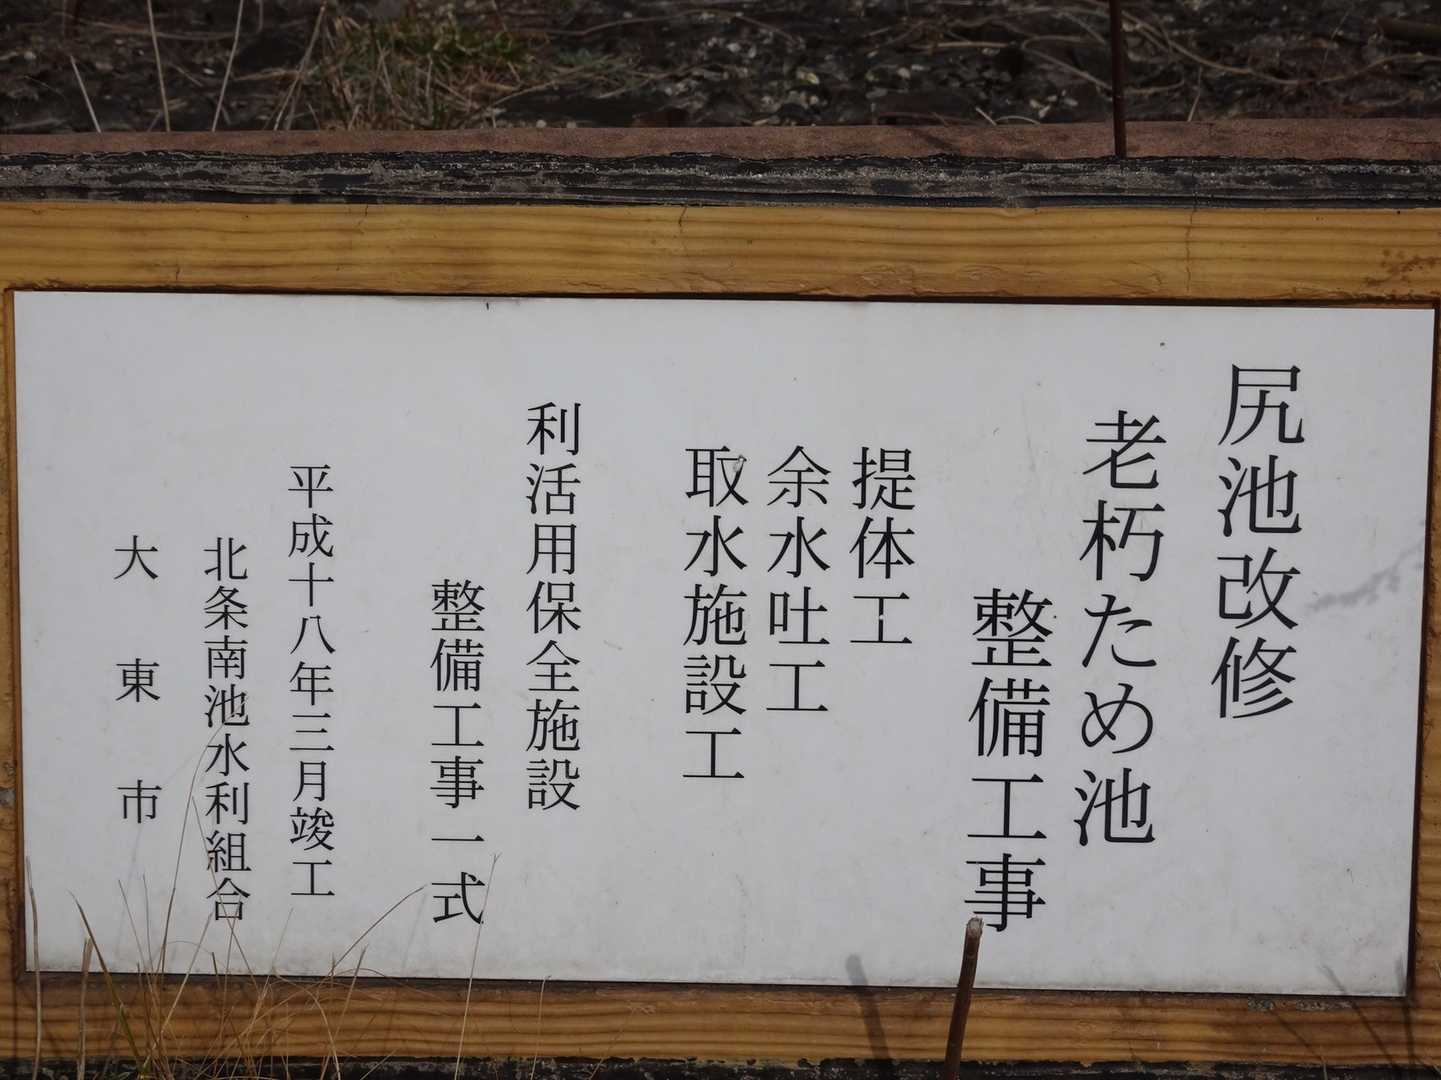 尻池改修
老朽ため池
整備工事
提体工
余水吐工
取水施設工
利活用保全施設
整備工事一式
平成十八年三月竣工
北条南池水利組合
大東市